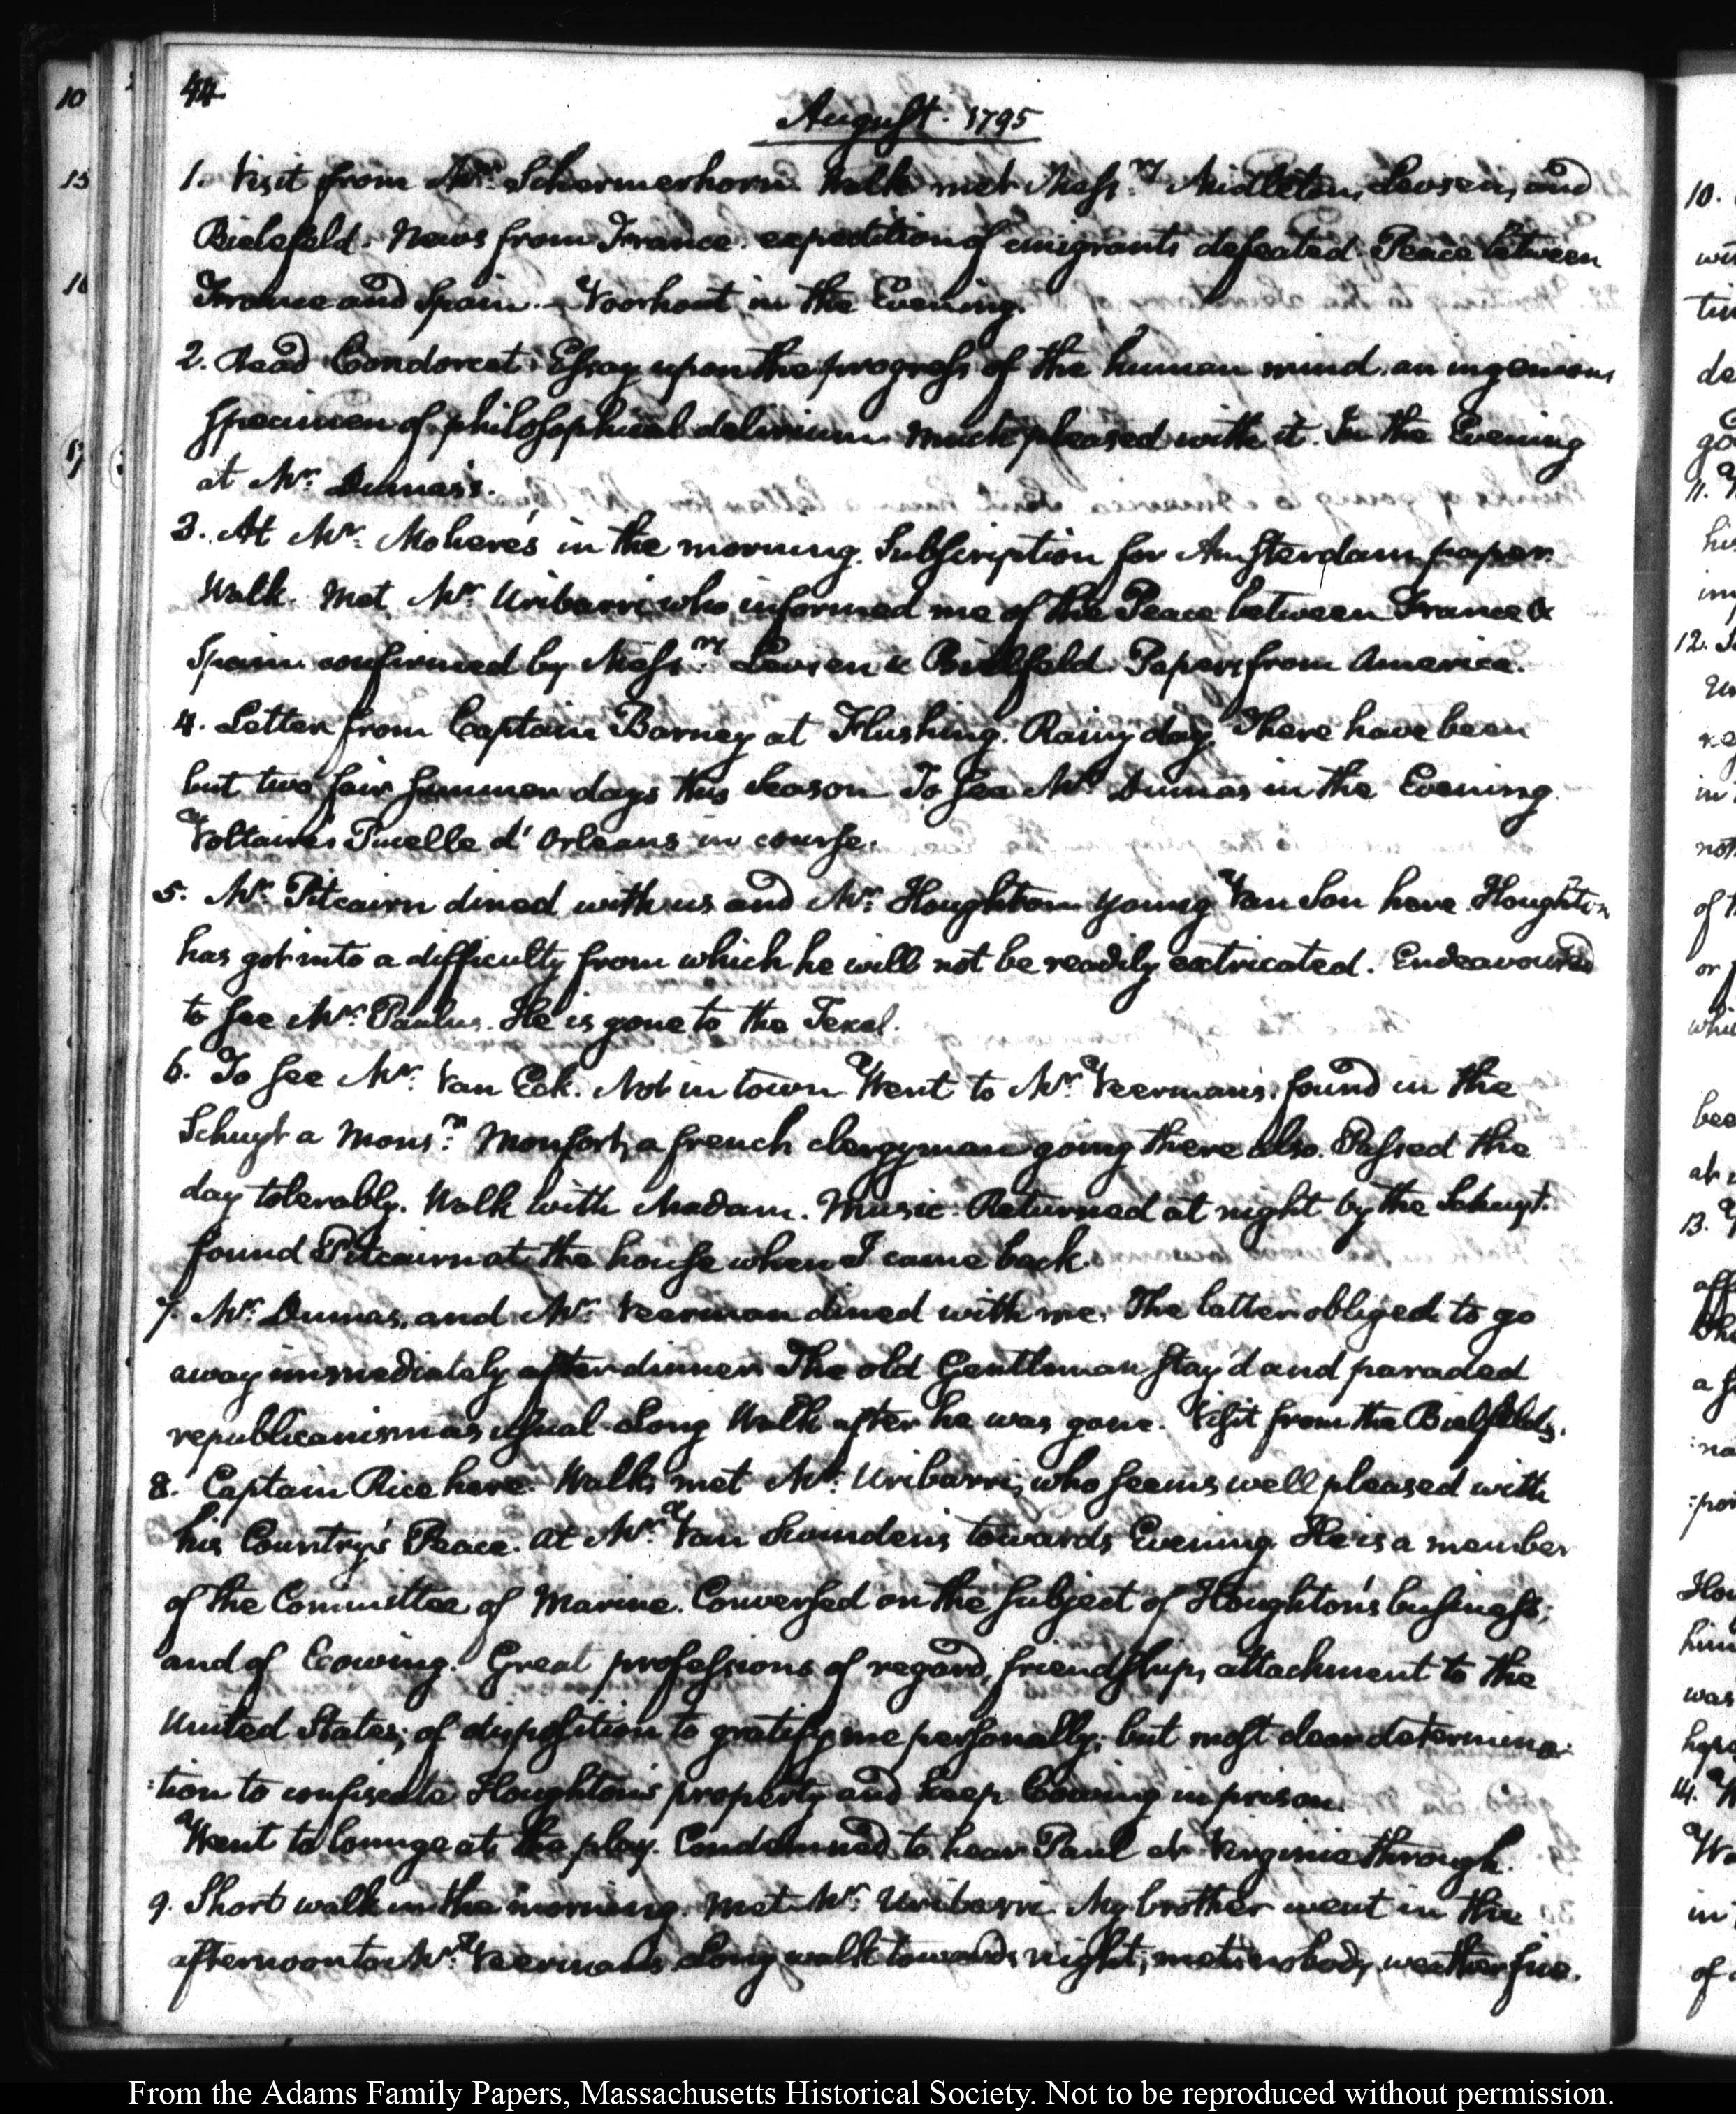 44.
August. 1795
1. Visit from Mr. Schermerhorn. Walk met Messrs. Midleton, Levsen, and
Bielefeld. News from France. expedition of emigrants defeated. Peace between
France and Spain. — Voorhout in the Evening.
2. Read Condorcet. Essay upon the progress of the human mind. an ingenious
specimen of philosophical delirium. much pleased with it. In the Evening
at Mr. Dumas's.
3. At Mr. Moliere's in the morning. Subscription for Amsterdam paper.
Walk. Met Mr. Uribarri who informed me of the Peace between France &
Spain confirmed by Messrs. Levsen & Bielfeld. Papers from America.
4. Letter from Captain Barney at Flushing. Rainy day. There have been
but two fair summer days this Season. To see Mr. Dumas in the Evening.
Voltaire's Pucelle d'Orleans in course.
5. Mr. Pitcairn dined with us and Mr. Houghton young Van Son here. Houghton
has got into a difficulty from which he will not be readily extricated. Endeavoured
to see Mr. Paulus. He is gone to the Texel.
6. To see Mr. Van Eck. Not in town. Went to Mr. Veerman's. found in the
Schuyt a Monsr. Monfort, a french clergyman going there also. Passed the
day tolerably. Walk with Madam. Music. Returned at night by the Schuyt.
found Pitcairn at the house when I came back.
7. Mr. Dumas, and Mr. Veerman dined with me. The latter obliged to go
away immediately after dinner. The old Gentleman stay'd and paraded
republicanism as usual. Long Walk after he was gone. Visit from the Bielfelds.
8. Captain Rice here. Walk; met Mr. Uribarri, who seems well pleased with
his Country's Peace. At Mr. Van Swinden's towards Evening. He is a member
of the Committee of Marine. Conversed on the subject of Houghton's business;
and of Cowing. Great professions of regard, friendship, attachment to the
United States; of disposition to gratify me personally; but most clear determina:
:tion to confiscate Houghton's property and keep Cowing in prison.
Went to lounge at the play. Condemned to hear Paul et Virginie through.
9. Short walk in the morning. Met Mr. Uribarri. My brother went in the
afternoon to Mr. Veerman's. Long walk towards night; met nobody, weather fine.
From the Adams Family Papers, Massachusetts Historical Society. Not to be reproduced without permission.